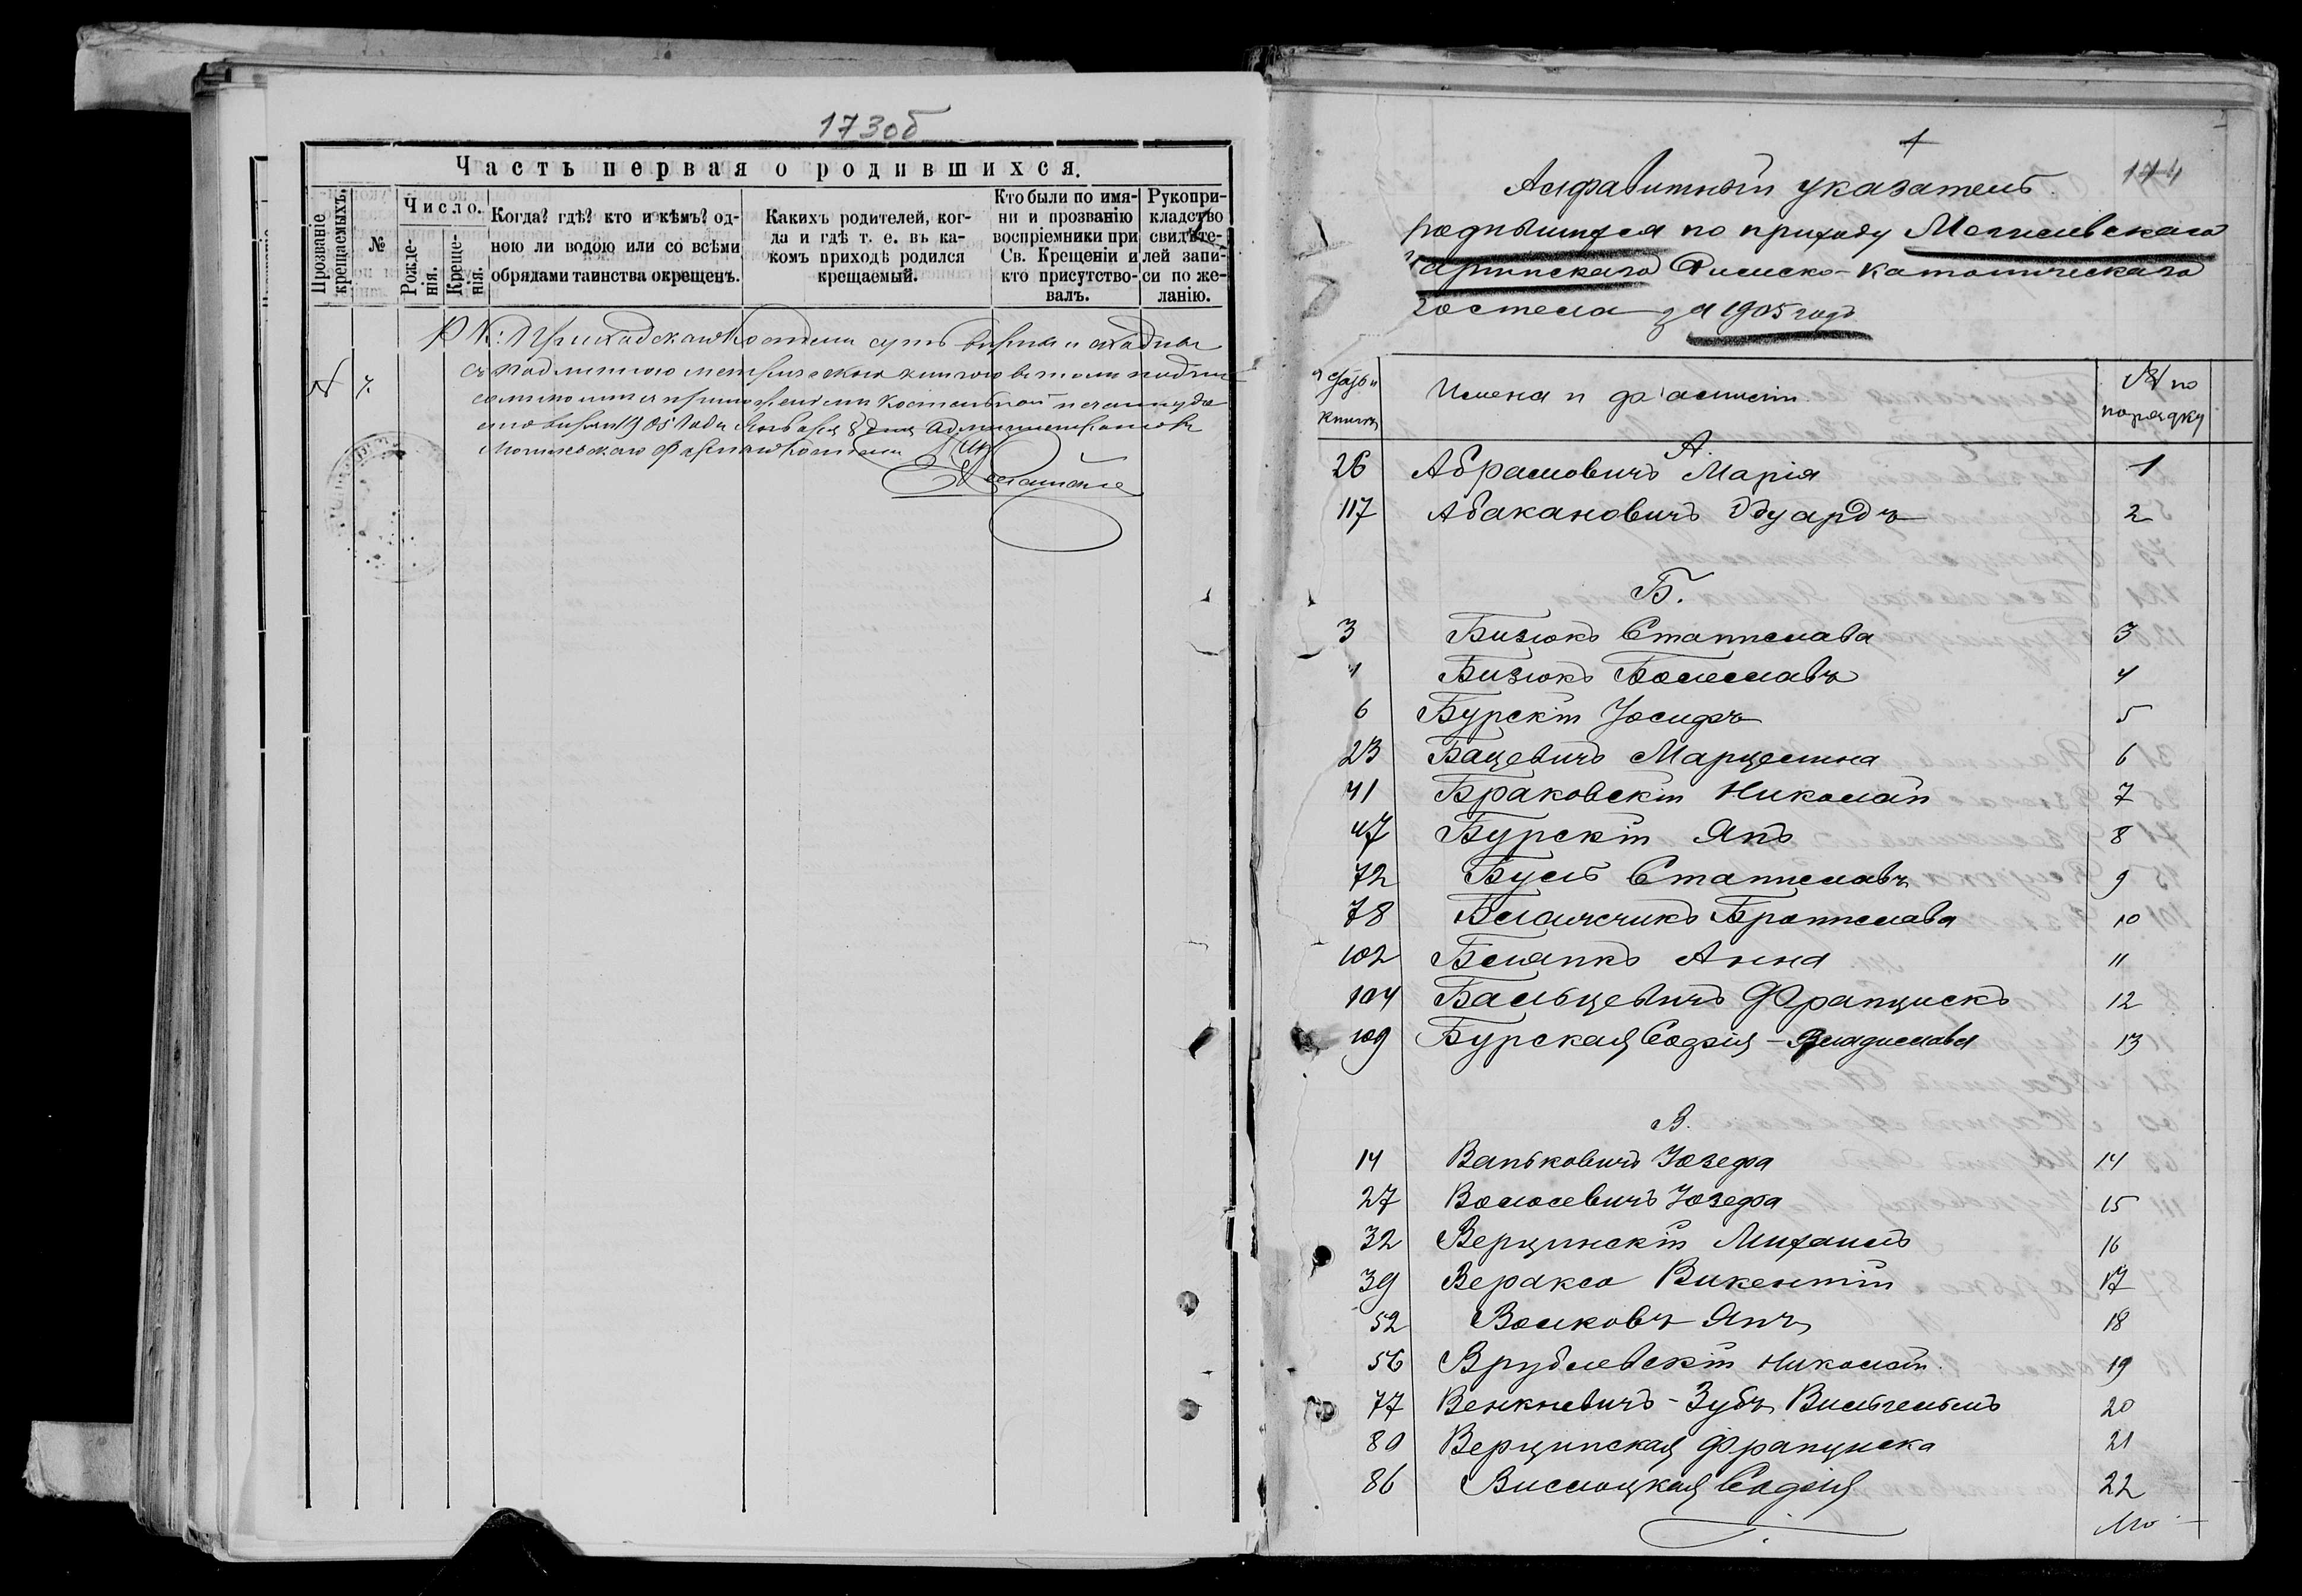 173об
Часть первая о родившихся.
Прозваніе крещаемыхъ.
№
Число.
Рожде-
нія.
Креще-
нія.
Когда? гдѣ? кто и кѣмъ? од-
ною ли водою или со всѣми
обрядами таинства окрещенъ.
Какихъ родителей, ког-
да и гдѣ т. е. въ ка-
комъ приходѣ родился
крещаемый.
Кто были по имя-
ни и прозванію
воспріемники при
Св. Крещеніи и
кто присутство-
валъ.
Рукопри-
кладство
свидѣте-
лей запи-
си по же-
ланію.
Р К: Приходскаго Костела суть вѣрны и сходны
съ подлинною метрическою книгою въ томъ подпи
сомъ моимъ и приложеніемъ Костельной печати удо
1905 года Января 8 дня Администраторъ
Могилевскаго Костела
174
Алфавитный указатель
родившихся по приходу Могилевскаго
Фарнскаго Римско-Католическаго
Костела за 1905 годъ
книги
Имена и фамиліи.
№ по
порядку
А.
26 Абрамовичъ Марія 1
117 Абакановичъ Эдуардъ 2
Б.
3 Бизюкъ Станислава 3
4 Бизюкъ Болеславъ 4
6 Бурскій Іосифъ 5
23 Бацевичъ Марцелина 6
41 Браковскій Николай 7
47 Бурскій Янъ 8
72 Буль Станиславъ 9
78 Бронислава 10
102 Анна 11
104 Бальцевичъ Францискъ 12
109 Бурская Софія-Владислава 13
В.
14 Ваньковичъ Юзефа 14
27 Волосевичъ Юзефа 15
32 Верцинскій Михаилъ 16
39 Веракса Викентій 17
52 Волковъ Янъ 18
56 Врублевскій Николай. 19
77 Венкневичъ-Зубъ Вильгельмъ 20
80 Верцинская Француска 21
86 Вислоцкая Софія 22